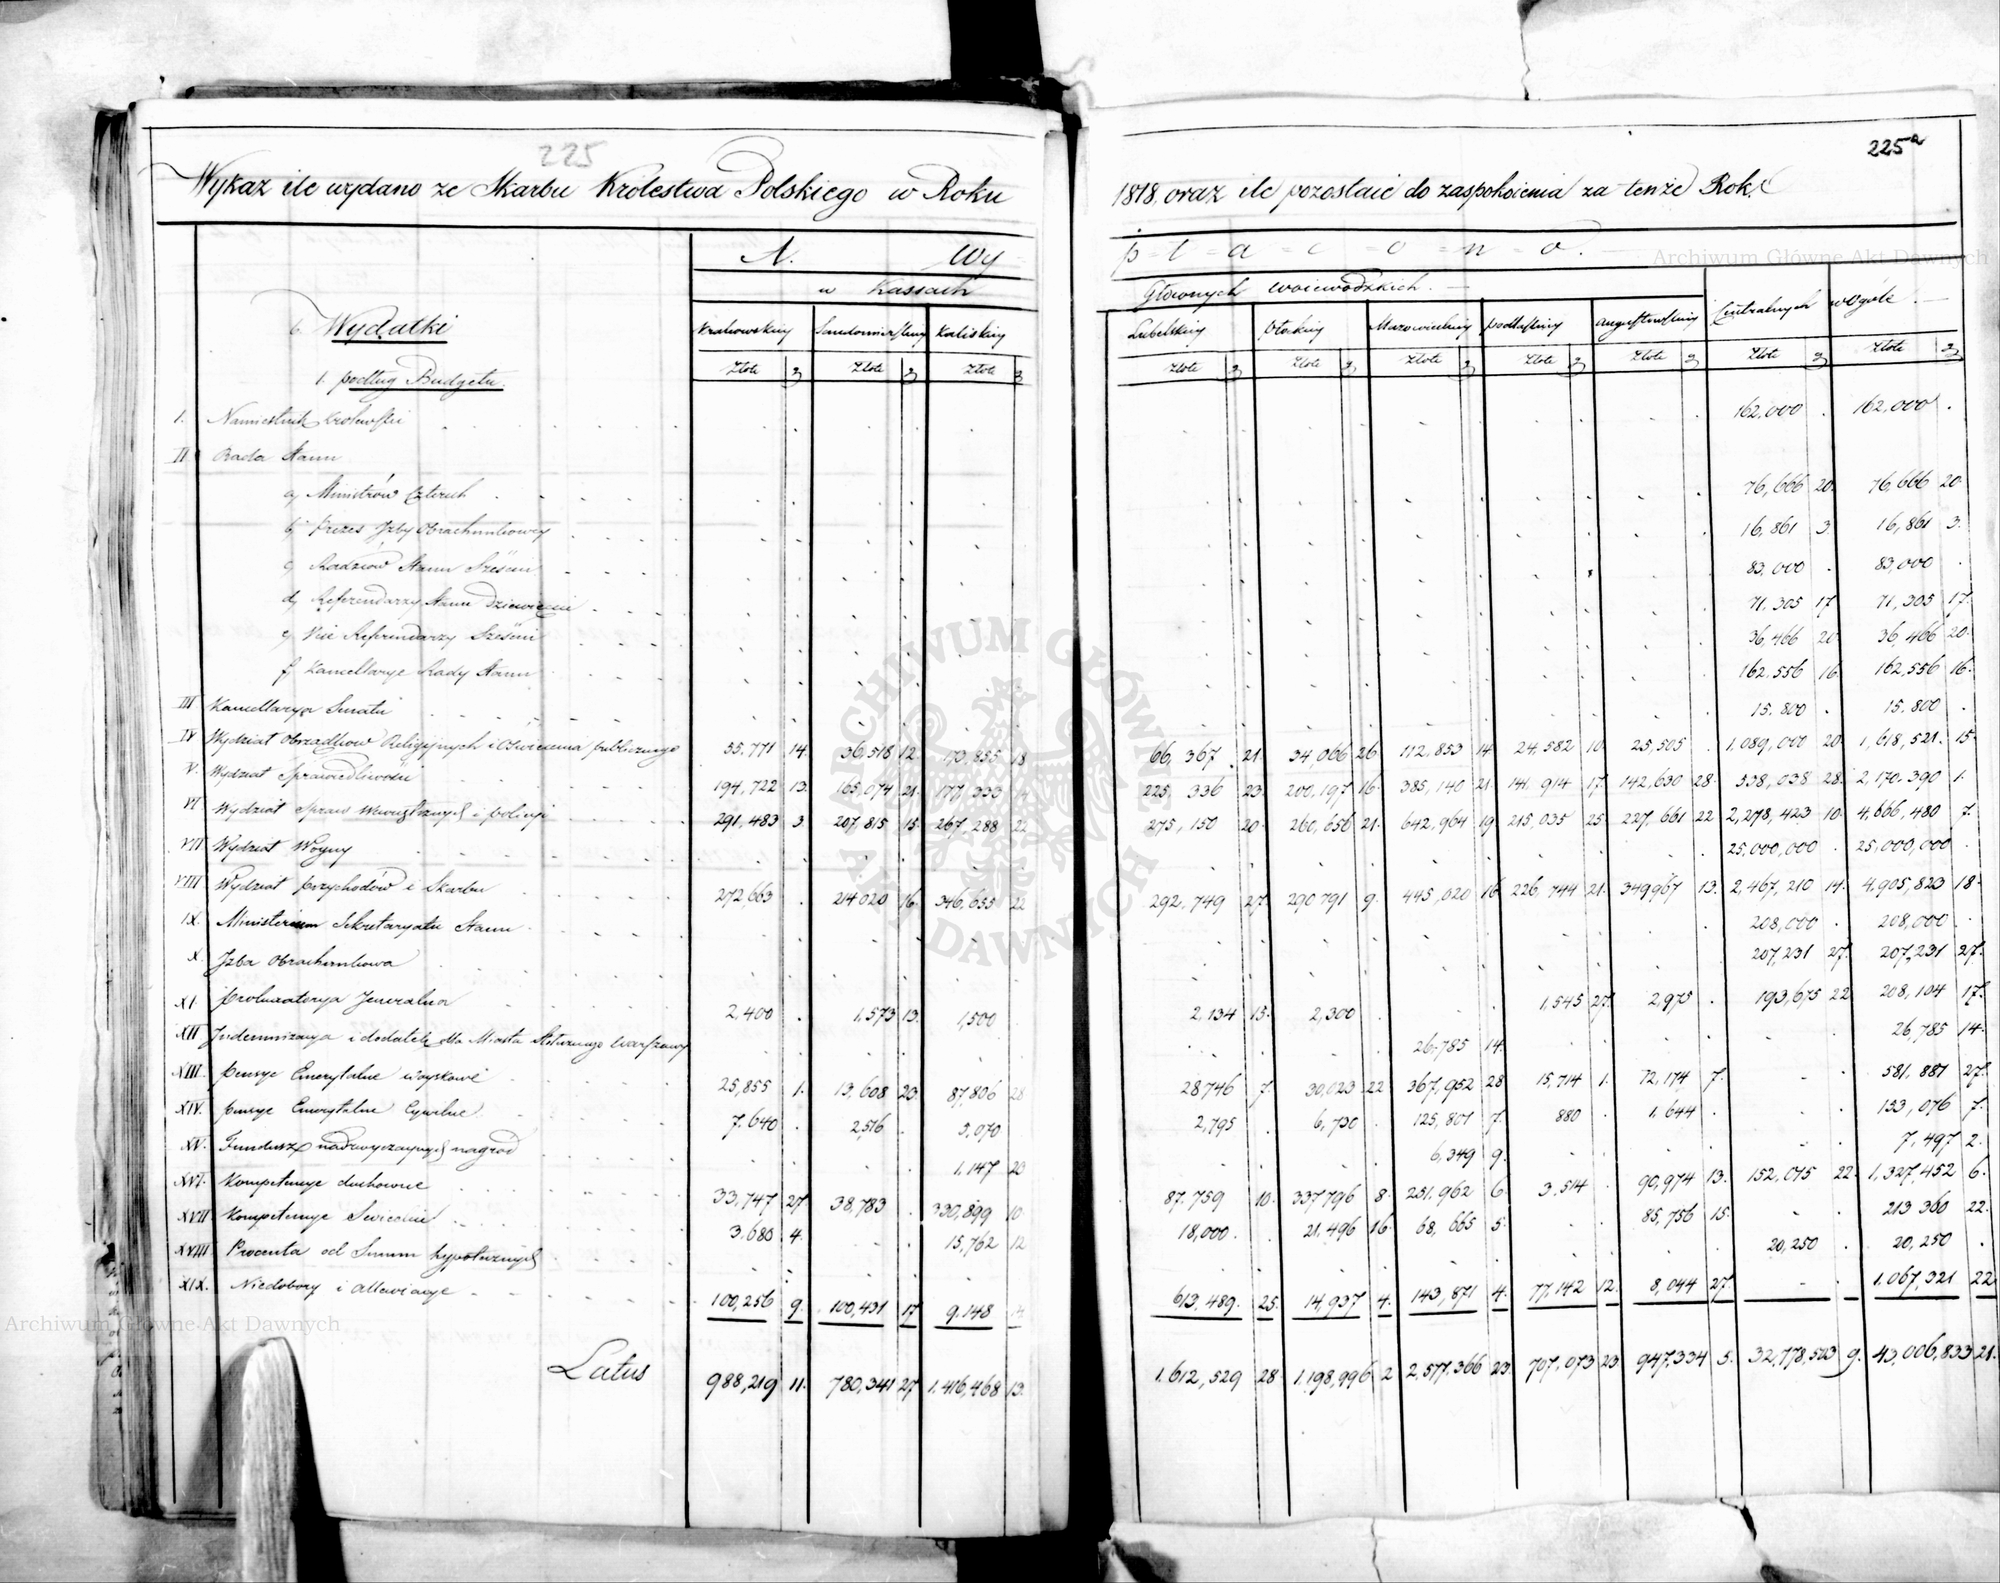 225
225a
Wykaz ile wydano ze Skarbu Królestwa Polskiego w Roku 1818. oraz ile pozostaie do zaspokoienia za tenże Rok.
A. Wy=p=ł=a=c=o=n=o.
w Kassach Głównych woiewódzkich.
b. Wydatki
1. podług Budgetu
Krakowskiey | Sandomierskiey | Kaliskiey | Lubelskiey | Płockiey | Mazowieckiey | podlaskiey | Augustowskiey | Centralnych | wogóle
Złote | g | Złote | g | Złote | g | Złote | g | Złote | g | Złote | g | Złote | g | Złote | g | Złote | g | Złote | g
I. Namiestnik Królewski . . . 162,000 . 162,000 .
II Rada Stanu
a) Ministrów Czterech . . . 76,666 20. 76,666 20.
b) Prezes Jzby Obrachunkowey . . . 16,861 3. 16,861 3.
c) Radzców Stanu Sześciu . . . 83,000 . 83,000 .
d) Referendarzy Stanu Dziewięciu . . . 71,305 17 71,305 17.
e) Vice Referendarzy Sześciu . . . 36,466 20. 36,466 20.
f) Kancellarye Rady Stanu . . . 162,556 16. 162,556 16.
III Kancellarya Senatu . . . 15,800 . 15,800 .
IV Wydział Obrządków Religiynych i Oświecenia publicznego 55,771 14. 36,518 12. 173,855 18 66,367 21. 34,066 26 112,853 14 24,582 10. 25,505 . 1,089,000 20. 1,618,521. 15.
V. Wydział Sprawiedliwości 194,722 13. 165,074 21. 177,333 14 225,336 23. 200,197 16. 385,140 21. 141,914 17. 142,630 28. 538,038 28. 2,170,390 1.
VI Wydział Spraw Wewnętrznych i policyi 291,483 3. 207,815 15. 267,288 22 275,150 20. 260,656 21. 642,964 19 215,035 25. 227,661 22 2,278,423 10. 4,666,480 7.
VII Wydział Woyny . . . 25,000,000 . 25,000,000 .
VIII Wydział przychodów i Skarbu 272,663 . 214,020 16. 346,655 22 292,749 27. 290,791 9. 445,020 16 226,744 21. 349,967 13. 2,467,210 14. 4,905,823 18.
IX. Ministerium Sekretaryatu Stanu . . . 208,000 . 208,000 .
X. Jzba Obrachunkowa . . . 207,231 27. 207,231 27.
XI. prokuratorya Jeneralna 2,400 . 1,573 13. 1,500 2,134 15. 2,300 . . 1,545 27. 2,975 . 193,675 22 208,104 17.
XII Jndemnizacya i dodatek dla Miasta Stołecznego Warszawy . . . 26,785 14. . . . 26,785 14.
XIII. pensye Emerytalne woyskowe 25,855 1. 13,608 20. 87,806 28 28,746 7. 30,023 22 367,952 28 15,714 1. 72,174 7. . 581,881 27.
XIV. pensye Emerytalne Cywilne 7,640 . 2,516 . 5,070 2,795 . 6,730 . 125,801 7. 880 . 1,644 . . 153,076 7.
XV. Fundusz nadzwyczaynych nagród . . 1,147 23 . . 6,349 9. . . . 7,497 2.
XVI. Kompetencye duchowne 33,747 27 38,783 . 330,899 10. 87,759 10. 337,796 8. 251,962 6. 3,514 . 90,974 13. 152,015 22. 1,327,452 6.
XVII Kompetencye Świeckie 3,680 4. . . 15,762 12 18,000 . 21,496 16. 68,665 5. . . 85,756 15. . . 213,360 22.
XVIII. Procenta od Summ hypotecznych . . . 20,250 . 20,250 .
XIX. Niedobory i allewiacye 100,256 9. 100,431 17 9,148 14 613,489. 25. 14,937 4. 143,871 4. 77,142 12. 8,044 27. . 1,067,321 22
Latus 988,219 11. 780,341 27 1,416,468 13. 1,612,529 28. 1,198,996 2 2,577,366 23. 707,073 23 947,334 5. 32,778,503 9. 43,006,833 21.
Archiwum Główne Akt Dawnych
ARCHIWUM GŁÓWNE AKT DAWNYCH
Archiwum Główne Akt Dawnych